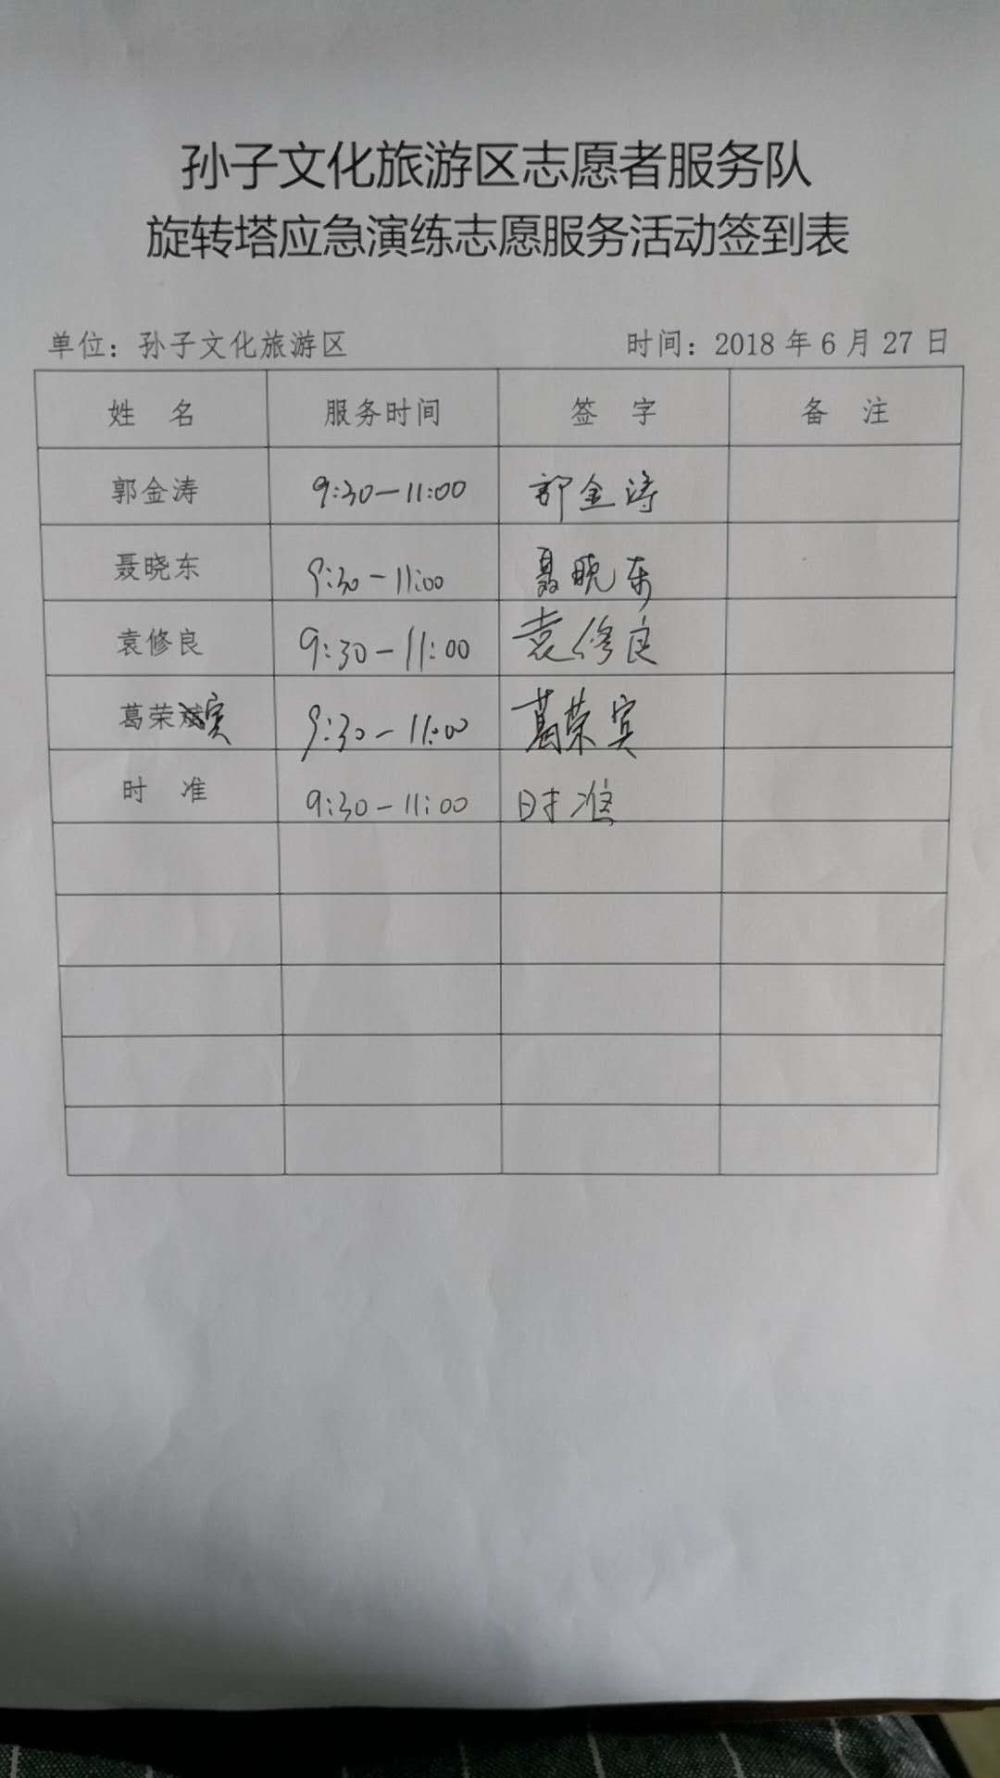 孙子文化旅游区志愿者服务队
旋转塔应急演练志愿服务活动签到表
单位：孙子文化旅游区 时间：2018年6月27日
姓 名 服务时间 签 字 备 注
郭金涛 9:30-11:00 郭金涛
聂晓东 9:30-11:00 聂晓东
袁修良 9:30-11:00 袁修良
葛荣宾 9:30-11:00 葛荣宾
时 准 9:30-11:00 时准